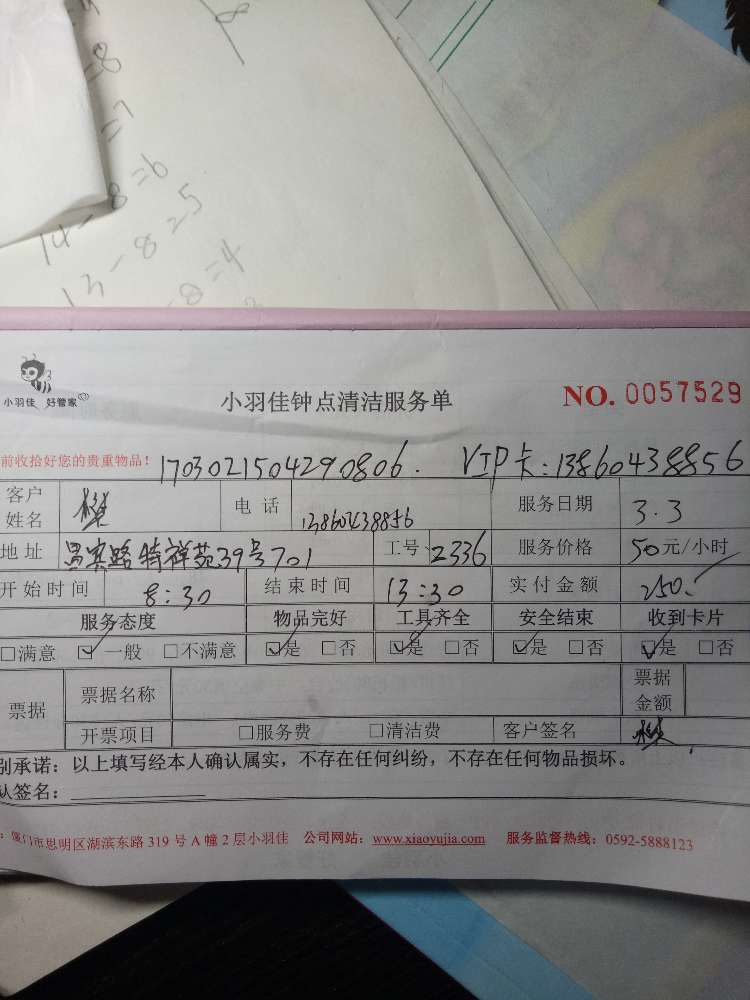 8
=8
=7
14-8=6
13-8=5
-8=4
小羽佳 好管家
小羽佳钟点清洁服务单 NO. 0057529
前收拾好您的贵重物品! 1703021504290806. VIP卡:13860438856
客户姓名 电话 13860438856 服务日期 3.3
地址 昌宾路特祥苑39号701 工号 2336 服务价格 50元/小时
开始时间 8:30 结束时间 13:30 实付金额 250.
服务态度 物品完好 工具齐全 安全结束 收到卡片
□满意 ☑一般 □不满意 ☑是 □否 ☑是 □否 ☑是 □否 ☑是 □否
票据 票据名称 票据金额
开票项目 □服务费 □清洁费 客户签名
别承诺:以上填写经本人确认属实,不存在任何纠纷,不存在任何物品损坏。
认签名:
:厦门市思明区湖滨东路319号A幢2层小羽佳 公司网站:www.xiaoyujia.com 服务监督热线:0592-5888123